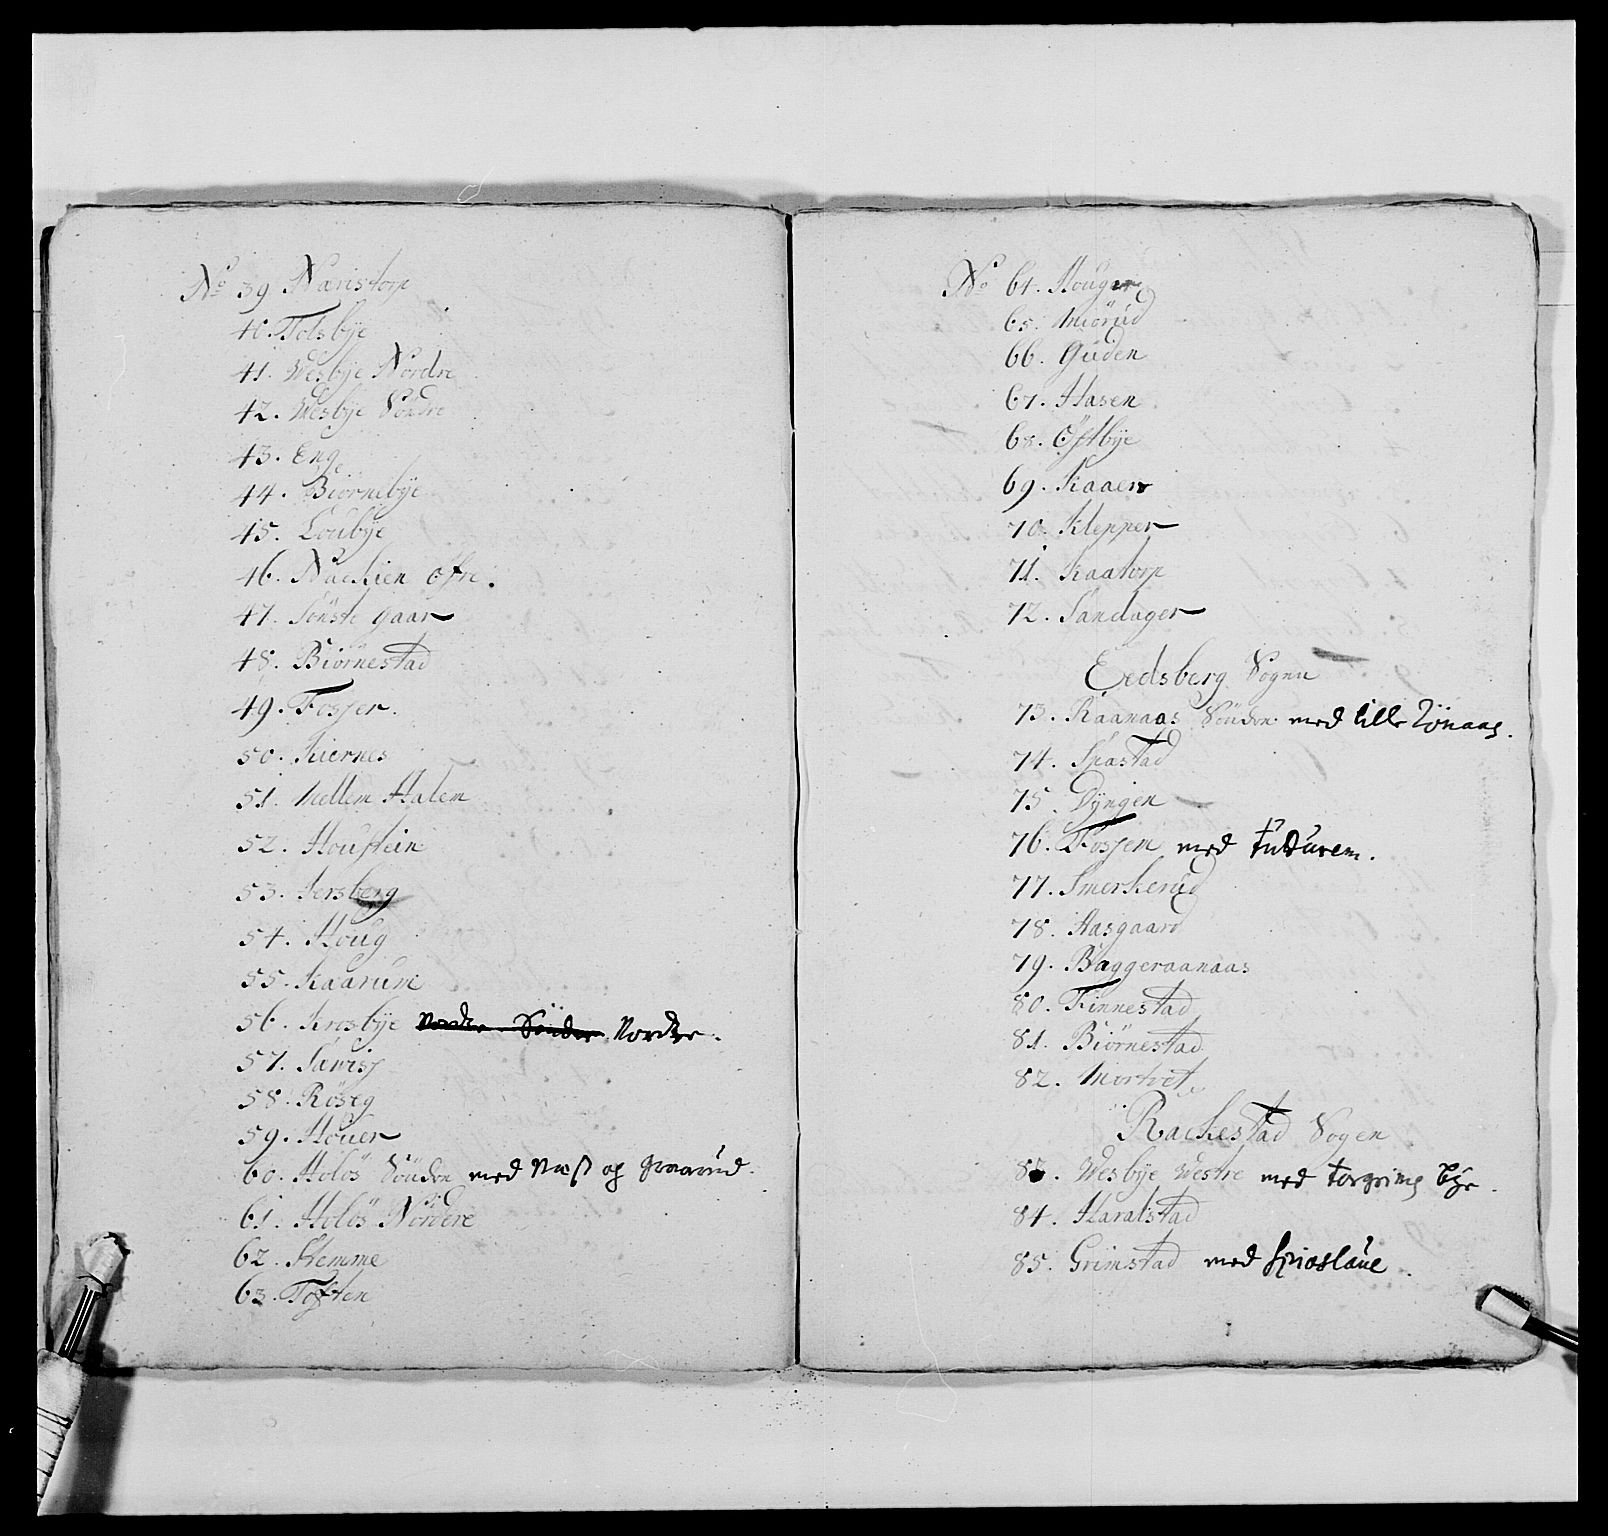 No 39 Naristorp
40. Tolsbÿe
41. Wesbÿe Nordre
42. Wesbÿe Söndre
43. Eng
44. Biörnebÿe
45. Loubÿe
46. Nackien Öfre.
47. Sönste gaar
48. Biörnestad
49. Fosser.
50. Kiernes
51. Mellem Halem
52. Houstein
53. Jersberg
54. Houg
55. Kaarum
56. Krosbÿe Nordre Söndre Nordre.
57.
58. Röseg
59. Höuer
60. Holös Söndre med Næss og Graarud.
61. Holös Nordere
62. Hemme
63. Toften
No 64. Houger
65. Miörud
66. Guden
67. Hasen
68. Östbÿe
69. Kaaen
70. Klepper
71. Kaatorp
72. Sandager
Eedsberg Sogen
73. Raanaas Sönden med lille Rönaas.
74. Spastad
75. Dÿngen
76. Fossem med
77. Smerkerud
78. Hasgaard
79. Baggeraanaas
80. Finnestad
81. Biörnestad
82. Mortvet
Rackestad Sogen
83. Wesbÿe Westre med Torgrims Bÿe.
84. Haralstad
85. Grimstad med